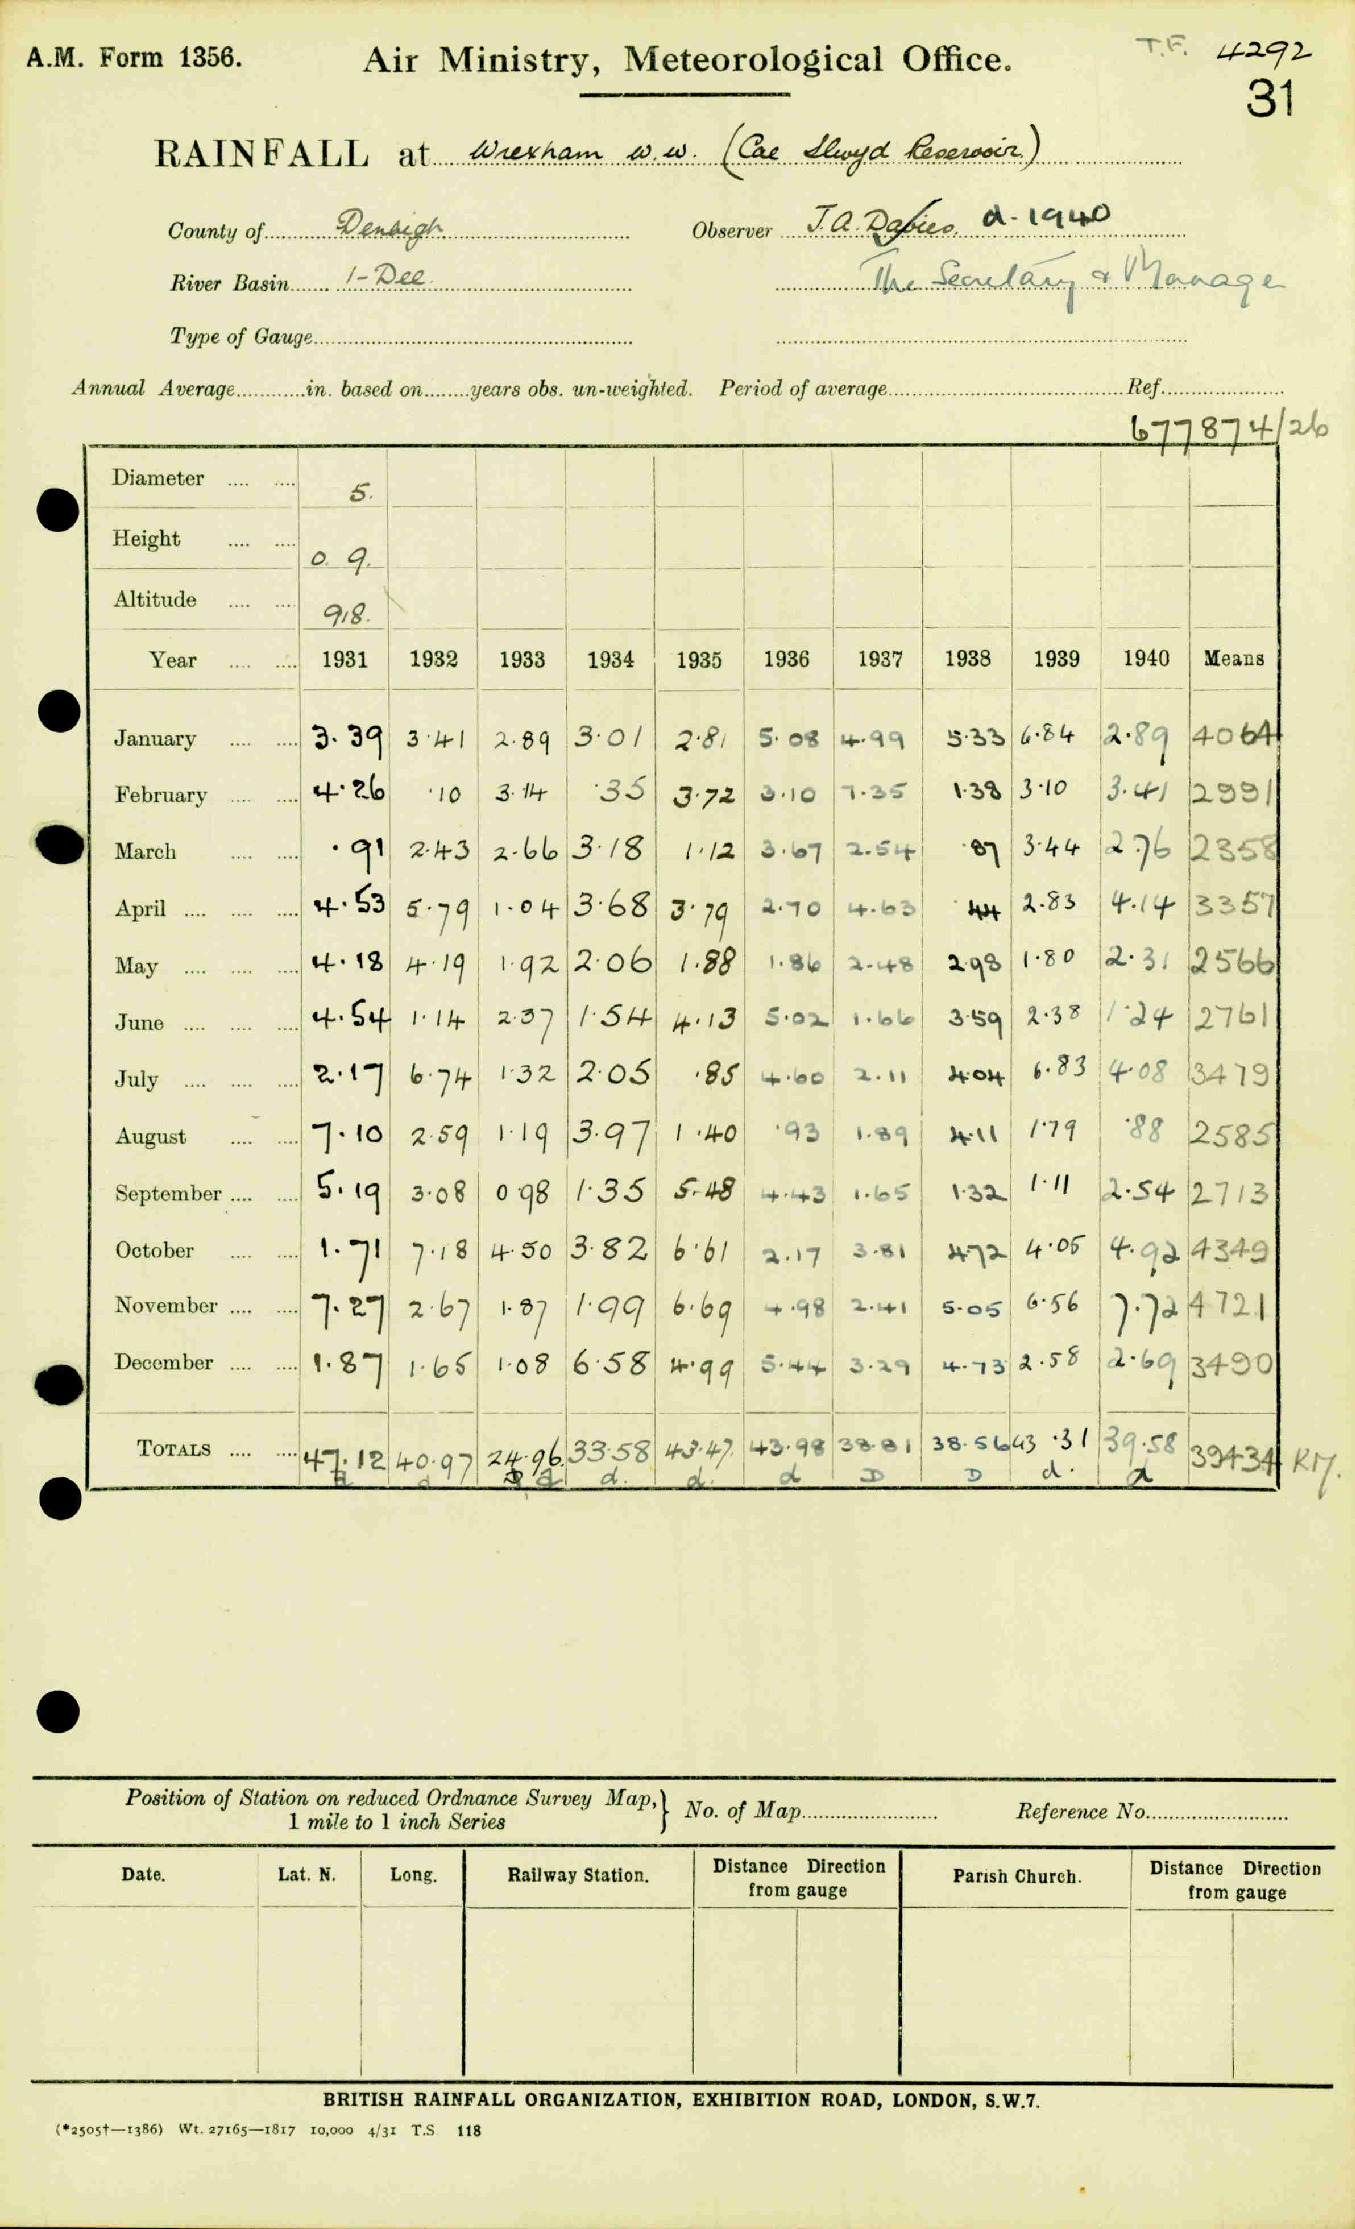 A.M. Form 1356. Air Ministry, Meteorological Office. T.F. 4292
31
RAINFALL at Wrexham W.W. (Cae Llwyd Reservoir)
County of Denbigh Observer J.A. Davies d-1940
River Basin 1-Dee The Secretary & Manager
Type of Gauge
Annual Average in. based on years obs. un-weighted. Period of average Ref.
677874/26
Diameter 5.
Height 0. 9.
Altitude 918.
Year 1931 1932 1933 1934 1935 1936 1937 1938 1939 1940 Means
January 3.39 3.41 2.89 3.01 2.81 5.08 4.99 5.33 6.84 2.89 4064
February 4.26 .10 3.14 .35 3.72 3.10 7.35 1.38 3.10 3.41 2991
March .91 2.43 2.66 3.18 1.12 3.67 2.54 .87 3.44 2.76 2358
April 4.53 5.79 1.04 3.68 3.79 2.70 4.63 .44 2.83 4.14 3357
May 4.18 4.19 1.92 2.06 1.88 1.86 2.48 2.98 1.80 2.31 2566
June 4.54 1.14 2.37 1.54 4.13 5.02 1.66 3.59 2.38 1.24 2761
July 2.17 6.74 1.32 2.05 .85 4.60 2.11 4.04 6.83 4.08 3479
August 7.10 2.59 1.19 3.97 1.40 .93 1.89 4.11 1.79 .88 2585
September 5.19 3.08 0.98 1.35 5.48 4.43 1.65 1.32 1.11 2.54 2713
October 1.71 7.18 4.50 3.82 6.61 2.17 3.81 4.72 4.05 4.92 4349
November 7.27 2.67 1.87 1.99 6.69 4.98 2.41 5.05 6.56 7.72 4721
December 1.87 1.65 1.08 6.58 4.99 5.44 3.29 4.73 2.58 2.69 3490
TOTALS 47.12 40.97 24.96 33.58 43.47 43.98 38.81 38.56 43.31 39.58 39434 RM.
d d. d. d D D d. d
Position of Station on reduced Ordnance Survey Map, 1 mile to 1 inch Series } No. of Map Reference No.
Date. Lat. N. Long. Railway Station. Distance Direction from gauge Parish Church. Distance Direction from gauge
BRITISH RAINFALL ORGANIZATION, EXHIBITION ROAD, LONDON, S.W.7.
(*2505†—1386) Wt. 27165—1817 10,000 4/31 T.S 118